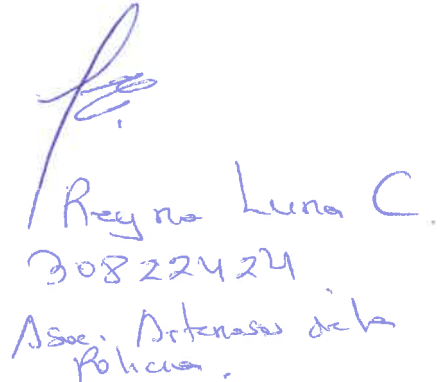 Reyna Luna C.
30822424
Asoc. Artenasas de la
Policia.